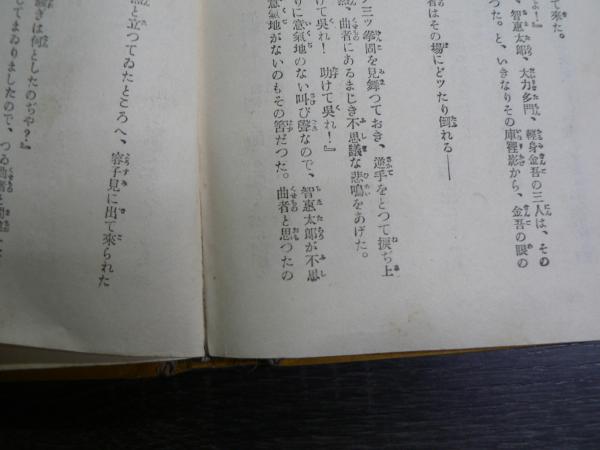 て來た。
よ！』
、智惠太郎、大力多門、輕身金吾の三人は、その
つた。と、いきなりその庫裡影から、金吾の眼の
者はその場にどツたり倒れる――
三ツ拳固を見舞つておき、逆手をとつて捩ぢ上
、曲者にあるまじき不思議な悲鳴をあげた。
て吳れ！　助けて吳れ！』
りに意氣地のない叫び聲なので、智惠太郎が不思
意氣地がないのもその筈だつた。曲者と思つたの
と立つてゐたところへ、容子見に出て來られた
ぎは何としたのぢや？』
してまゐりましたので、つゐ曲者と